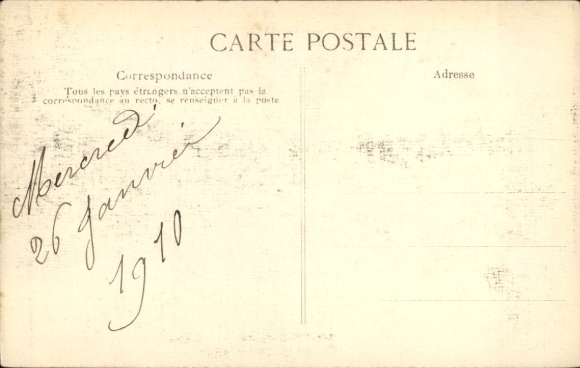 CARTE POSTALE
Correspondance
Tous les pays étrangers n'acceptent pas la
correspondance au recto, se renseigner à la poste
Adresse
Mercredi
26 Janvier
1910